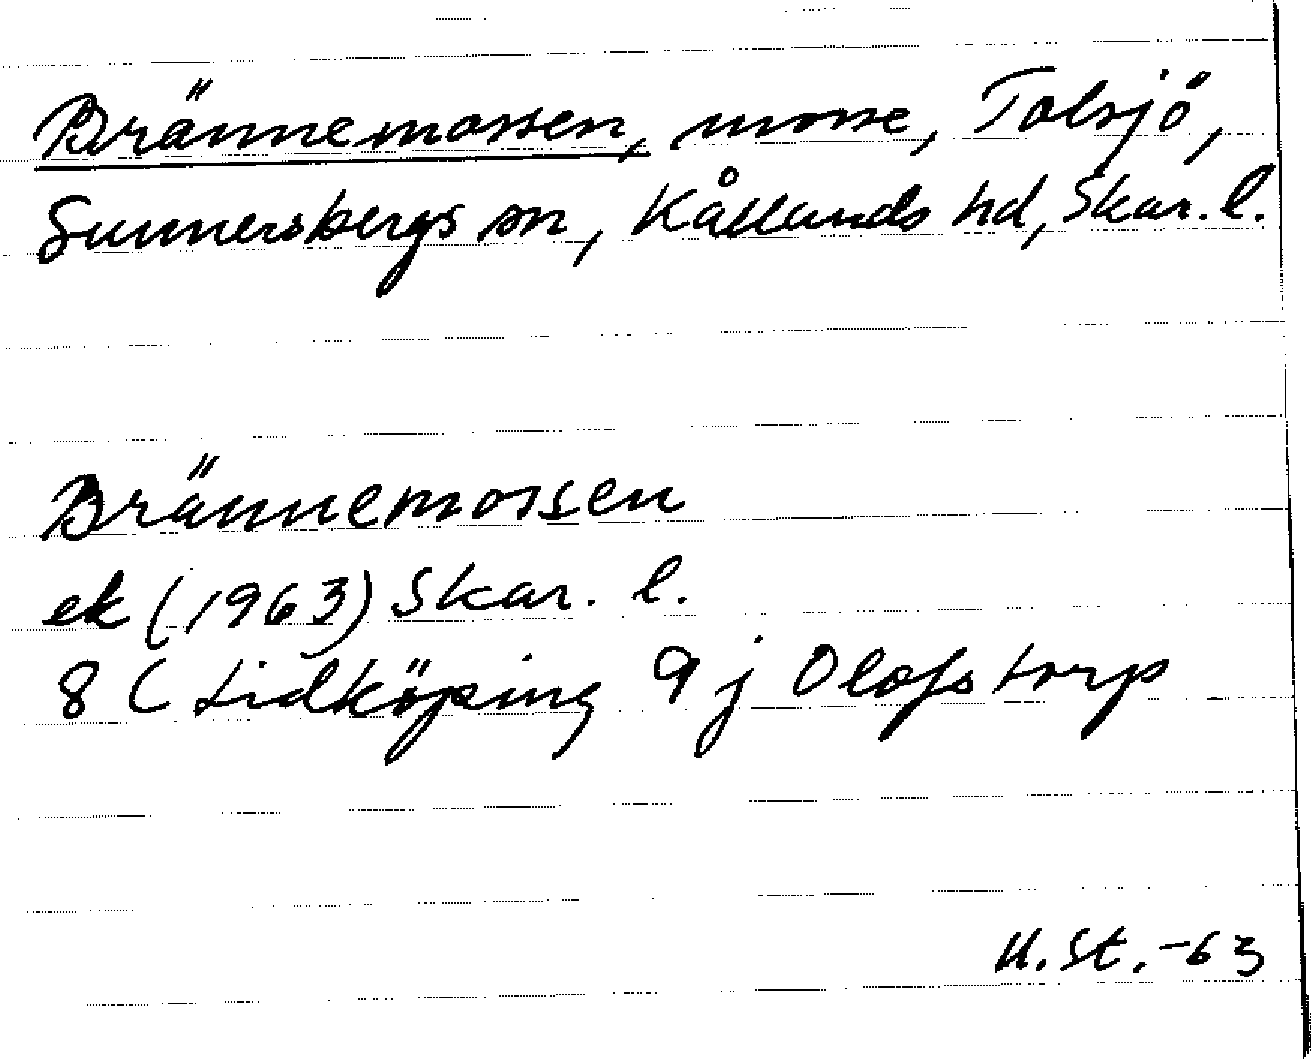 Brännemossen, mosse, Tolsjö,
Sunnersbergs sn, Kållands hd, Skar. l.
Brännemossen
ek (1963) Skar. l.
8 C Lidköping 9 j Olofstorp
U. St. -63